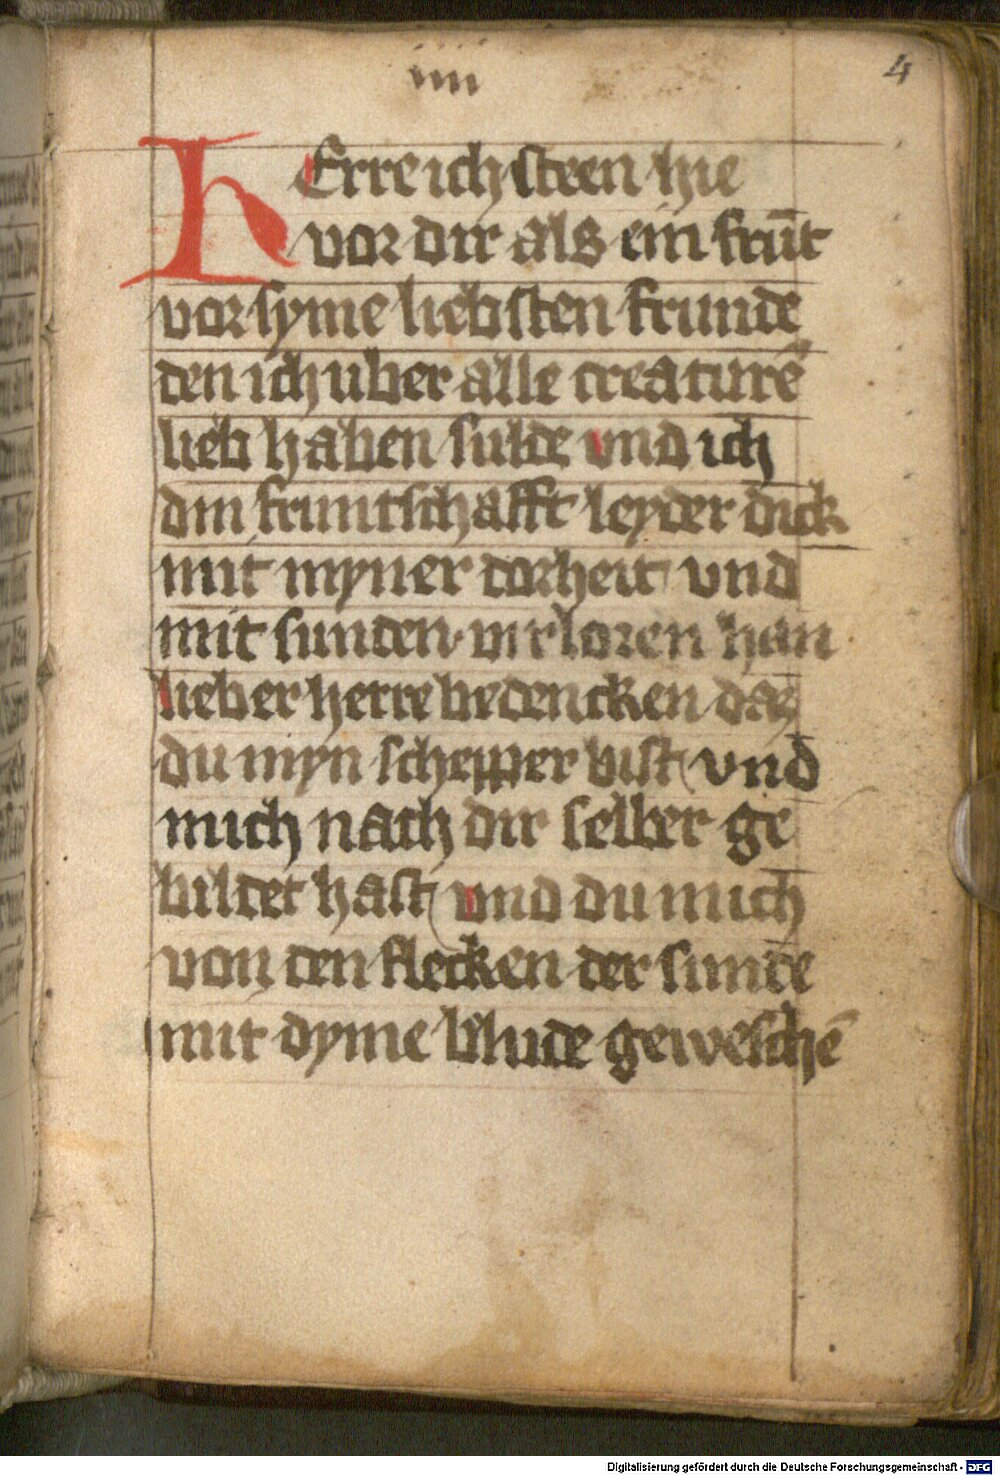 iiii 4
HErre ich steen hie
vor dir als ein frūt
vor syme liebsten frunde
den ich uber alle creaturē
lieb haben sulde und ich
din fruntschafft leyder dick
mit myner dorheit und
mit sunden virloren han
lieber herre bedencken daz
du myn schepper bist und
mich nach dir selber ge
bildet hast und du mich
von den flecken der sunde
mit dyme blude geweschē
Digitalisierung gefördert durch die Deutsche Forschungsgemeinschaft - DFG